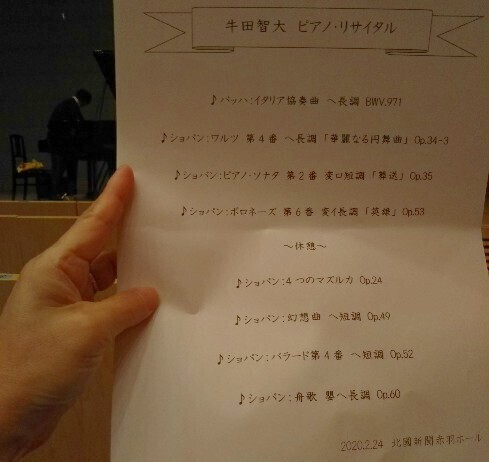 牛田智大 ピアノ・リサイタル
♪バッハ:イタリア協奏曲 ヘ長調 BWV.971
♪ショパン:ワルツ 第4番 ヘ長調「華麗なる円舞曲」Op.34-3
♪ショパン:ピアノ・ソナタ 第2番 変ロ短調「葬送」Op.35
♪ショパン:ポロネーズ 第6番 変イ長調「英雄」Op.53
～休憩～
♪ショパン:4つのマズルカ Op.24
♪ショパン:幻想曲 ヘ短調 Op.49
♪ショパン:バラード第4番 ヘ短調 Op.52
♪ショパン:舟歌 嬰ヘ長調 Op.60
2020.2.24 北國新聞赤羽ホール